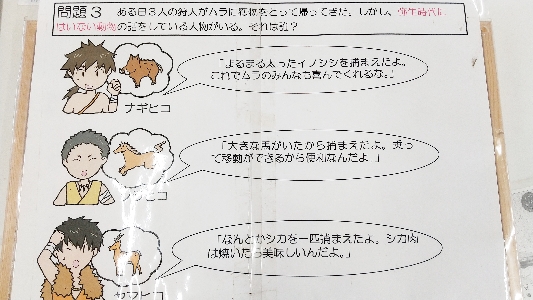 問題3 ある日3人の狩人がムラに獲物をとって帰ってきた。しかし、弥生時代に
はいない動物の話をしている人物がいる。それは誰?
「まるまる太ったイノシシを捕まえたよ。
これでムラのみんなも喜んでくれるな。」
ナギヒコ
「大きな馬がいたから捕まえたよ。乗っ
て移動ができるから便利なんだよ。」
ヒコ
「なんとかシカを一匹捕まえたよ。シカ肉
は焼いたら美味しいんだよ。」
ヒコ